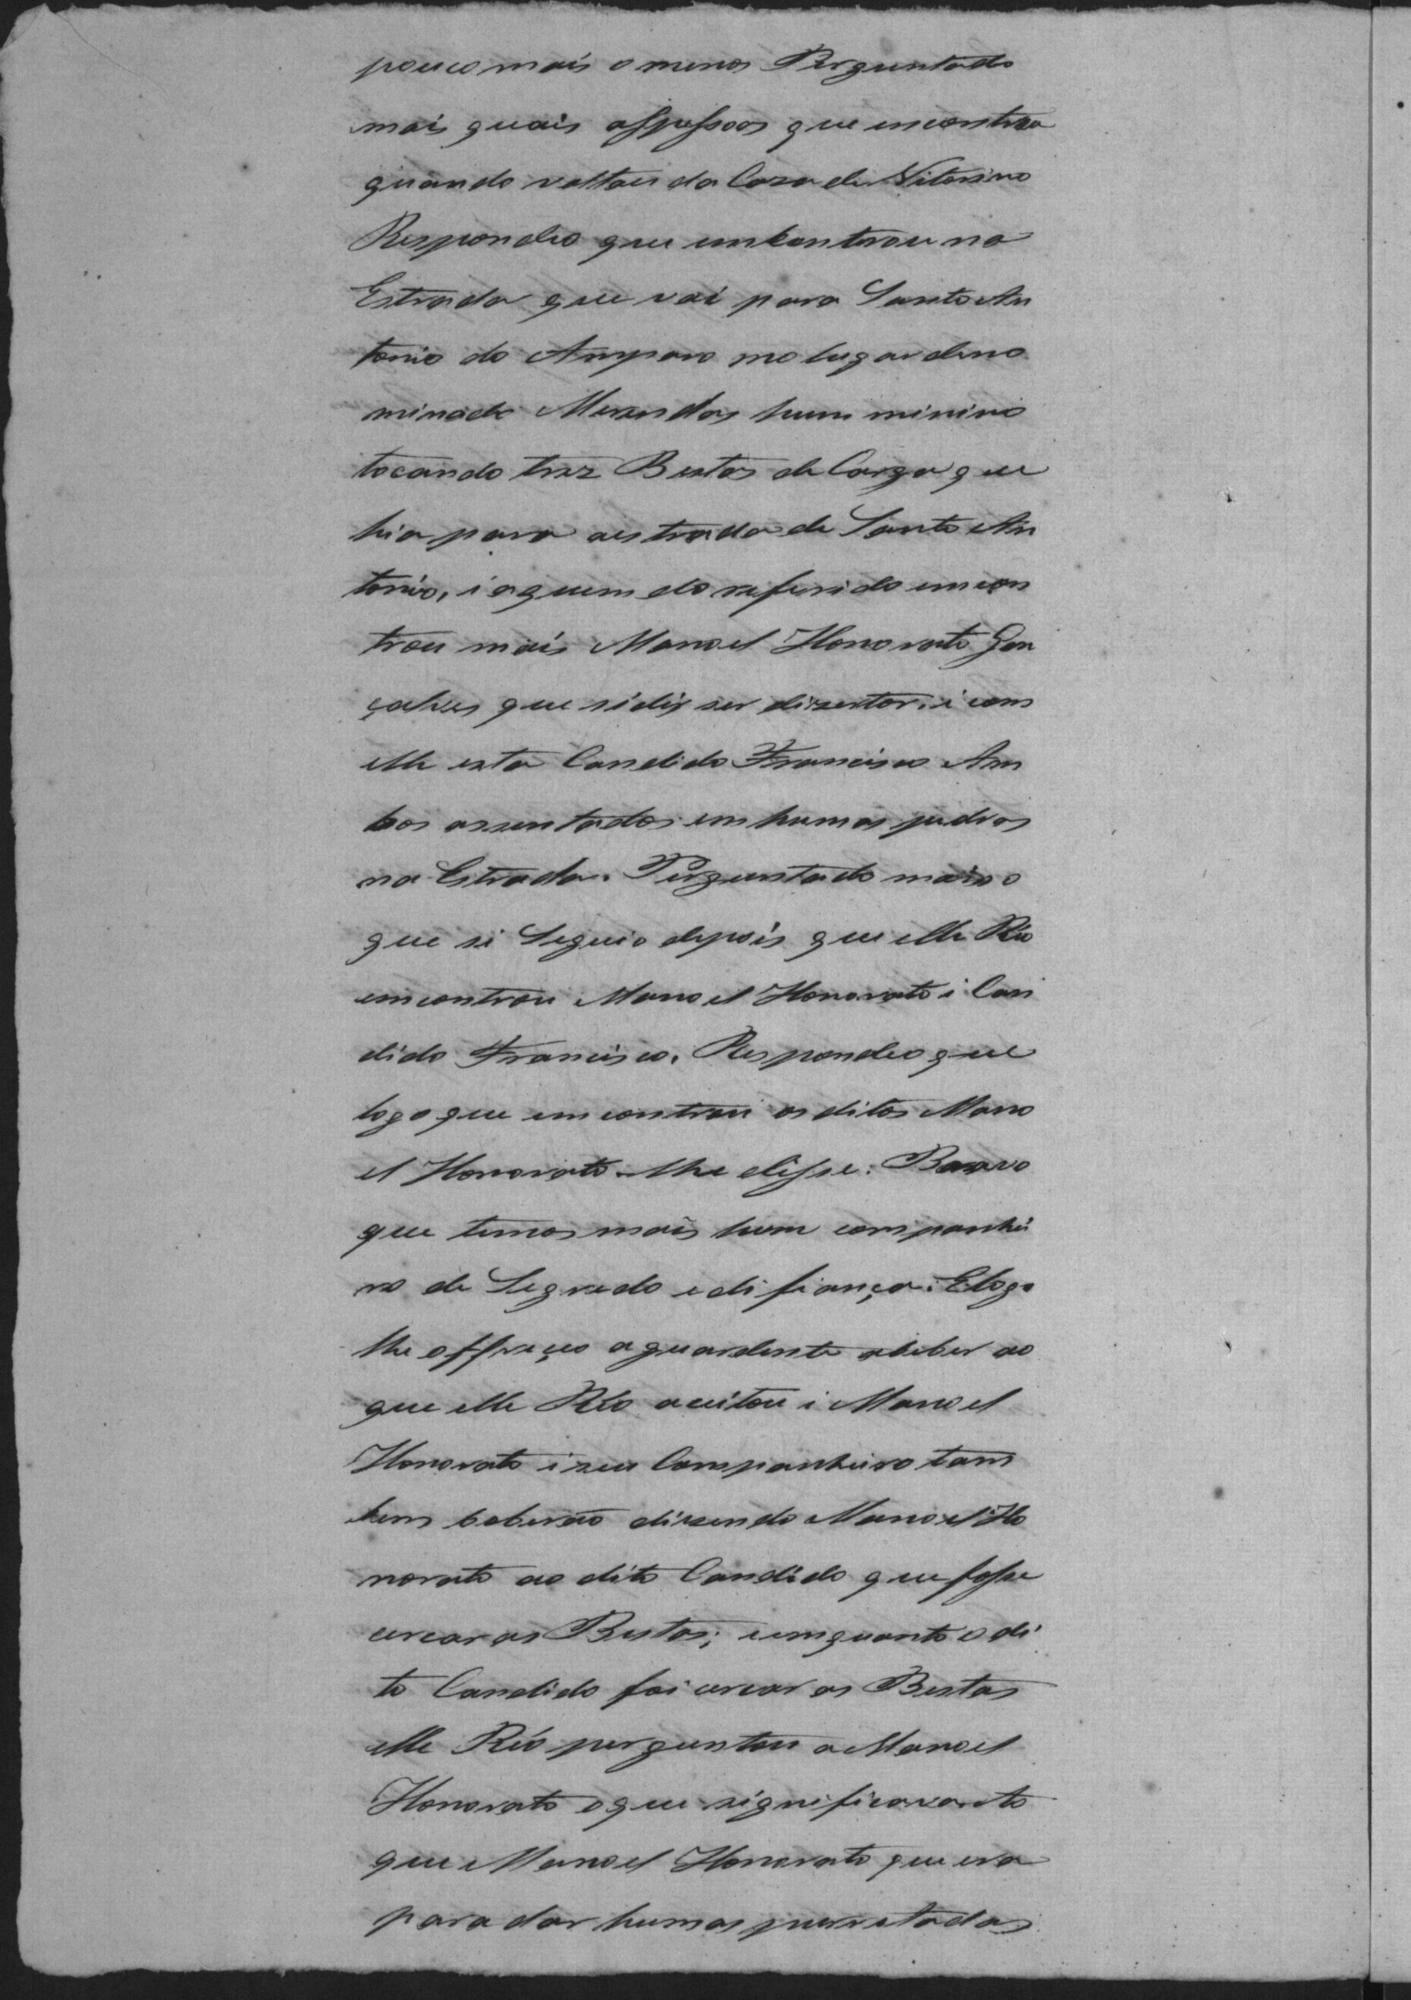 pouco mais o menos Perguntado
mais quais aspessoas que encontrou
quando voltou da Caza de Vitorino
Respondeo que emcontrou na
Estrada que vai para Santo An
tonio do Amparo no lugar deno
minado hum minino
tocando trez Bestas de Carga que
hia para aestrada de Santo An
tonio, i aquem do referido emcon
trou mais Manoel Honorato Gon
çalves que sidis ser dizertor, i com
elle esta Candido Francisco Am
bos assentados em humas pedras
na Estrada. Perguntado mais o
que si Seguio depois que elle Rio
emcontrou Manoel Honorato i Can
dido Francisco, Respondeo que
logo que emcontrou os ditos Mano
el Honorato lhe disse: Bravo
que temos mais hum companhei
ro de Segredo e di fiança: Elogo
lhe offreceo aguardente abeber ao
que elle Rio aceitou i Manoel
Honorato i seu Companheiro tam
bem beberão dizendo Manoel Ho
norato ao dito Candido que fosse
cercar as Bestas; iemquanto o di
to Candido foi cercar as Bestas
elle Rio perguntou a Manoel
Honorato oque significava isto
que Manoel Honorato que era
para dar humas porretadas